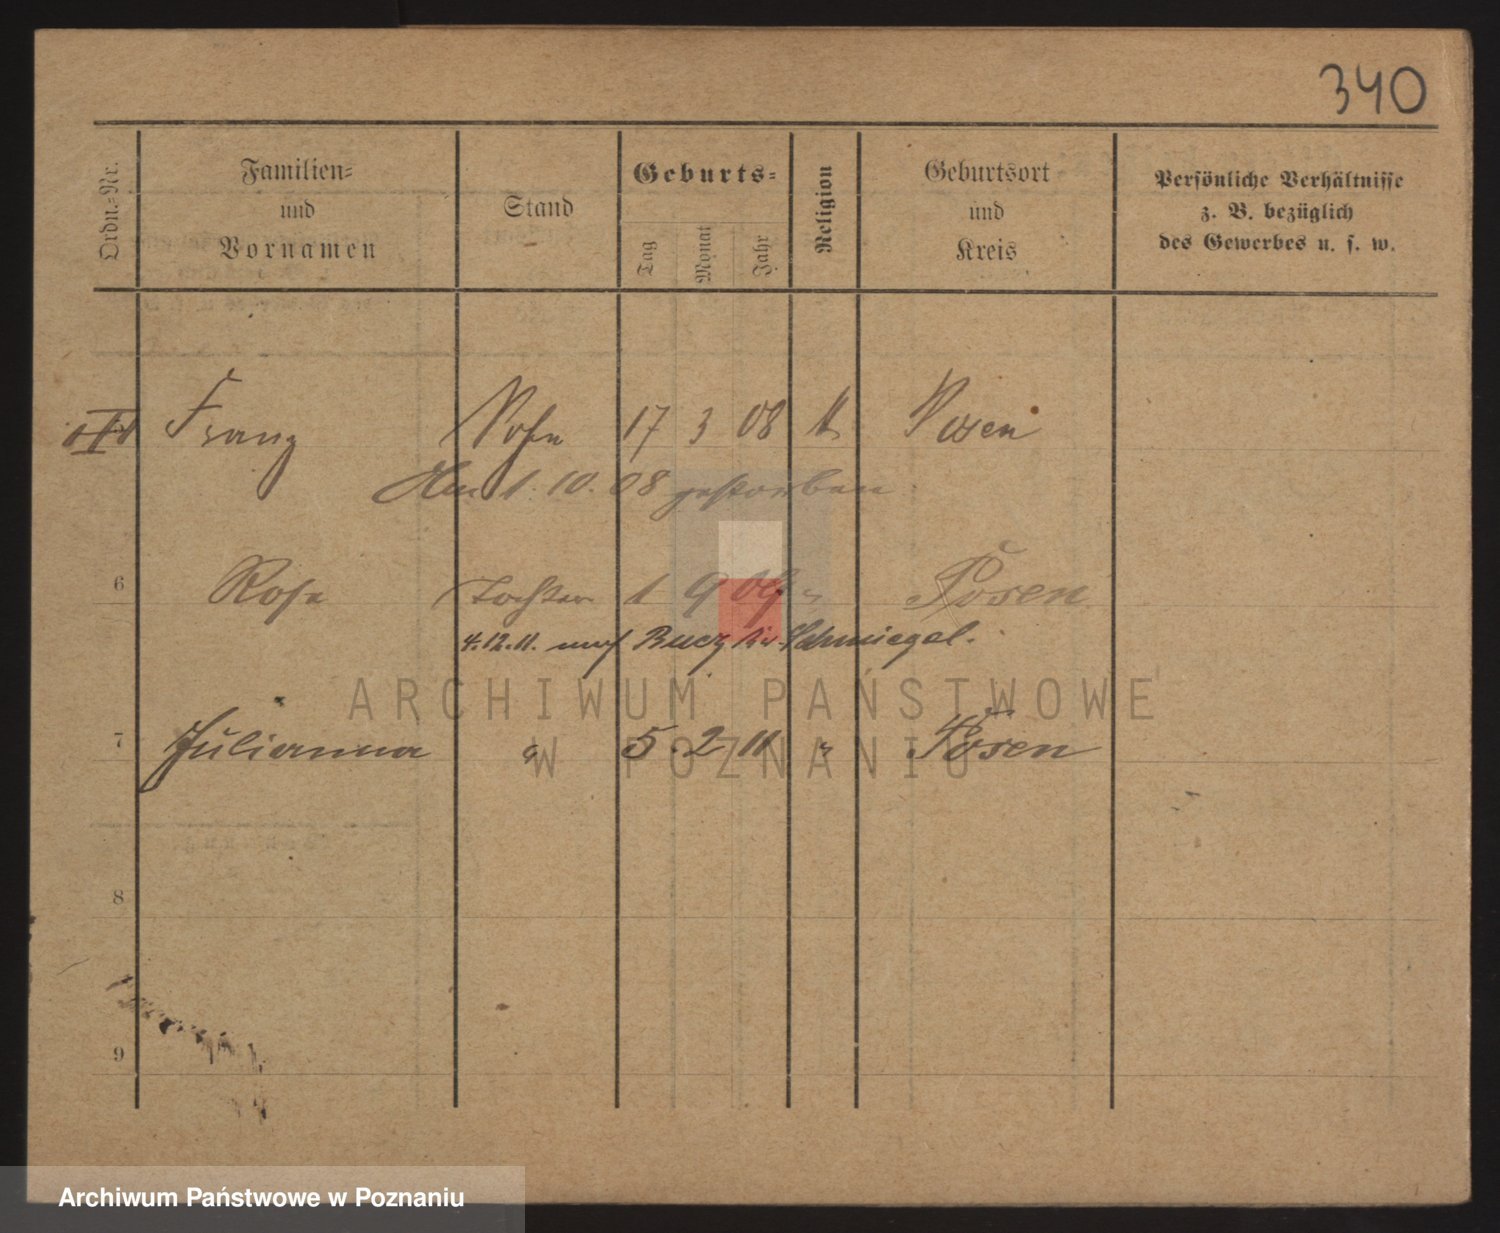 340
Ordn.-Nr. Familien- und Vornamen Stand Geburts- Tag Monat Jahr Religion Geburtsort und Kreis Persönliche Verhältnisse z. B. bezüglich des Gewerbes u. s. w.
Franz Sohn 17 3 08 k Posen
Am 1. 10. 08 gestorben
6 Rosa Tochter 1 9 09 " Posen
4.12.11. nach Bucz Kr. Schmiegel.
7 Julianna " 5 2 11 " Posen
8
9
ARCHIWUM PAŃSTWOWE
W POZNANIU
Archiwum Państwowe w Poznaniu